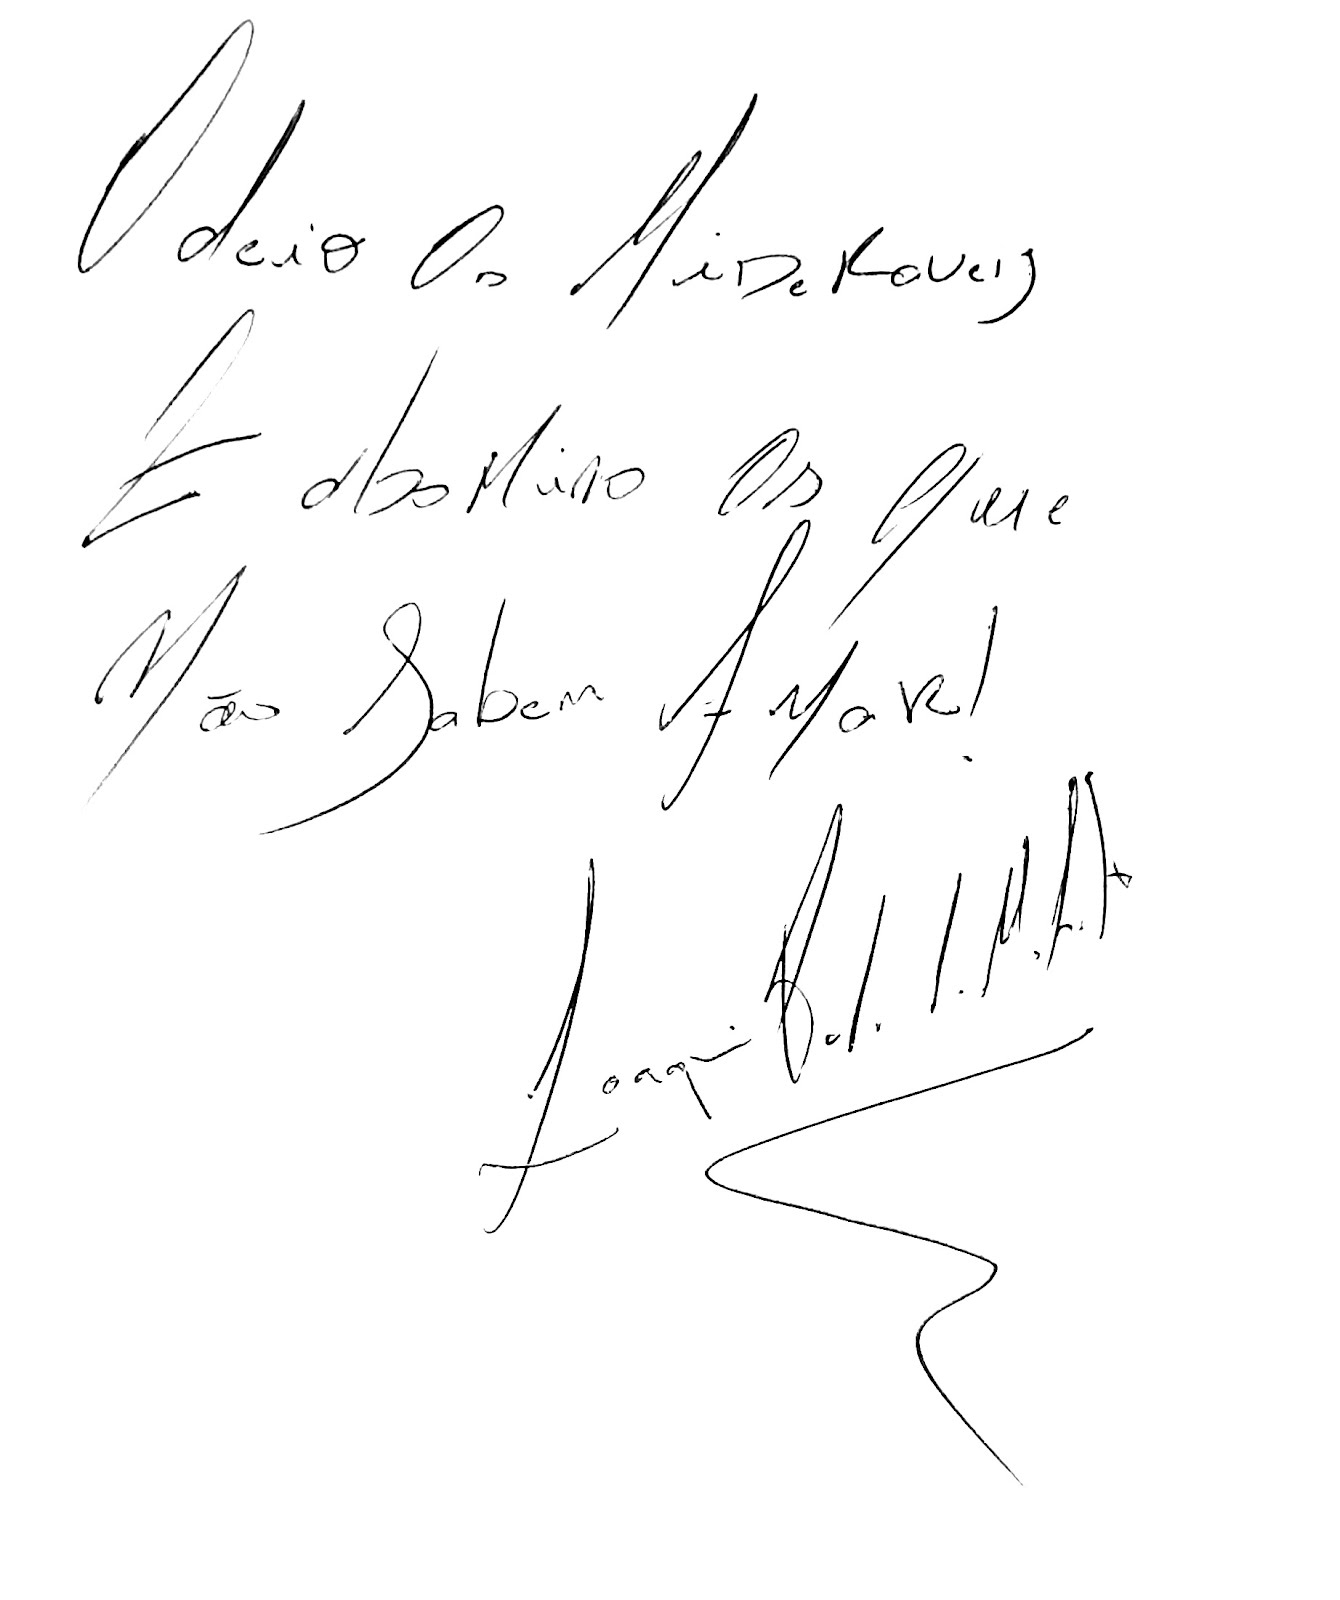 Odeio Os Miseraveis
E abomino Os Que
Não Sabem Amar!
Joaqui